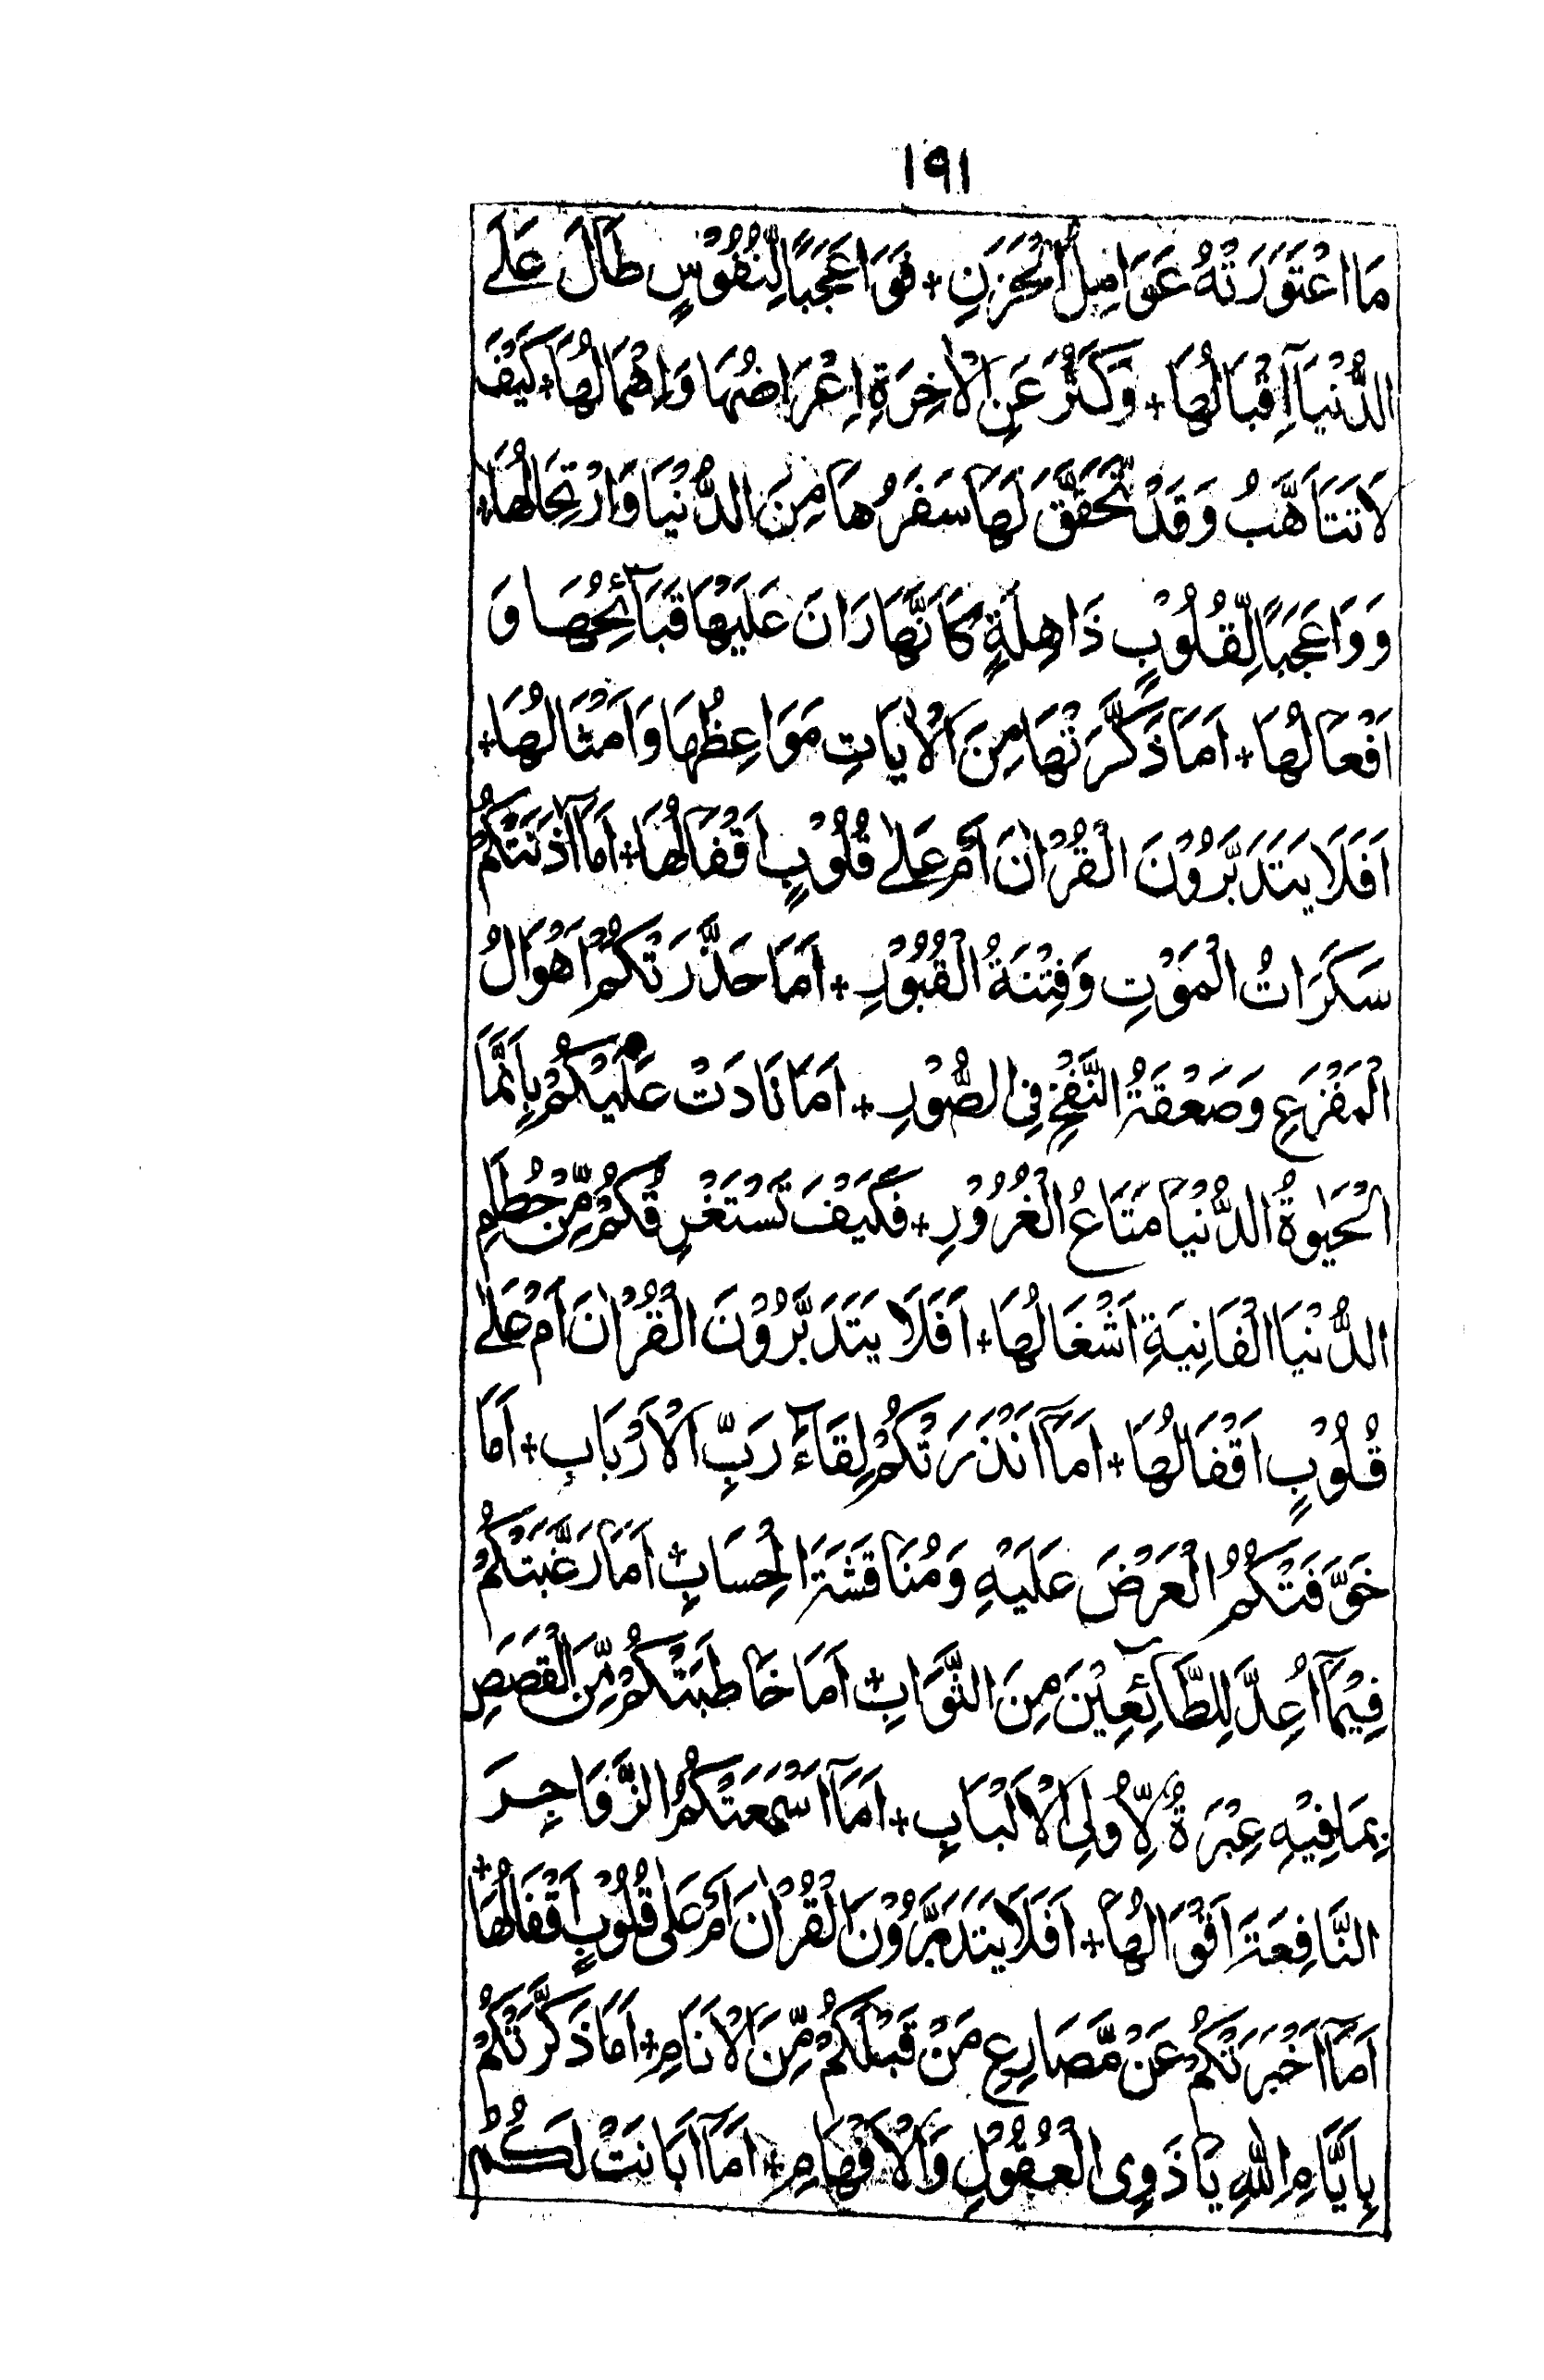 ١٩١
مَا اعْتَوَرَتْهُ عَوَامِلُ الْحَزَنِ + فَوَاعَجَبًا لِّنُفُوْسٍ طَالَ عَلَے
الدُّنْيَا اِقْبَالُهَا + وَكَثُرَ عَنِ الْاٰخِرَةِ اِعْرَاضُهَا وَاِهْمَالُهَا + كَيْفَ
لَا تَتَاَهَّبُ وَقَدْ تَّحَقَّقَ لَهَا سَفَرُهَا مِنَ الدُّنْيَا وَارْتِحَالُهَا +
وَوَاعَجَبًا لِّقُلُوْبٍ ذَاهِلَةٍ كَاَنَّهَا رَانَ عَلَيْهَا قَبَآئِحُهَا وَ
اَفْعَالُهَا + اَمَا ذَكَّرَتْهَا مِنَ الْاٰيَاتِ مَوَاعِظُهَا وَاَمْثَالُهَا +
اَفَلَا يَتَدَبَّرُوْنَ الْقُرْاٰنَ اَمْ عَلٰے قُلُوْبٍ اَقْفَالُهَا + اَمَا اٰذَنَتْكُمْ
سَكَرَاتُ الْمَوْتِ وَفِتْنَةُ الْقُبُوْرِ + اَمَا حَذَّرَتْكُمْ اَهْوَالُ
الْمَفْزَعِ وَصَعْقَةُ النَّفْخِ فِی الصُّوْرِ + اَمَا نَادَتْ عَلَيْكُمْ بِاَنَّمَا
الْحَيٰوةُ الدُّنْيَا مَتَاعُ الْغُرُوْرِ + فَكَيْفَ تَسْتَغْرِقُكُمْ مِّنْ حُطَامِ
الدُّنْيَا الْفَانِيَةِ اَشْغَالُهَا + اَفَلَا يَتَدَبَّرُوْنَ الْقُرْاٰنَ اَمْ عَلٰے
قُلُوْبٍ اَقْفَالُهَا + اَمَآ اَنْذَرَتْكُمْ لِقَآءَ رَبِّ الْاَرْبَابِ + اَمَا
خَوَّفَتْكُمُ الْعَرْضَ عَلَيْهِ وَمُنَاقَشَةَ الْحِسَابِ + اَمَا رَغَّبَتْكُمْ
فِيْمَآ اُعِدَّ لِلطَّآئِعِيْنَ مِنَ الثَّوَابِ + اَمَا خَاطَبَتْكُمْ مِّنَ الْقَصَصِ
بِمَا فِيْهِ عِبْرَةٌ لِّاُولِی الْاَلْبَابِ + اَمَآ اَسْمَعَتْكُمُ الزَّوَاجِرَ
النَّافِعَةَ اَقْوَالُهَا + اَفَلَا يَتَدَبَّرُوْنَ الْقُرْاٰنَ اَمْ عَلٰی قُلُوْبٍ اَقْفَالُهَا +
اَمَآ اَخْبَرَتْكُمْ عَنْ مَّصَارِعِ مَنْ قَبْلَكُمْ مِّنَ الْاَنَامِ + اَمَا ذَكَّرَتْكُمْ
بِاَيَّامِ اللّٰهِ يَا ذَوِی الْعُقُوْلِ وَالْاَفْهَامِ + اَمَآ اَبَانَتْ لَكُمْ